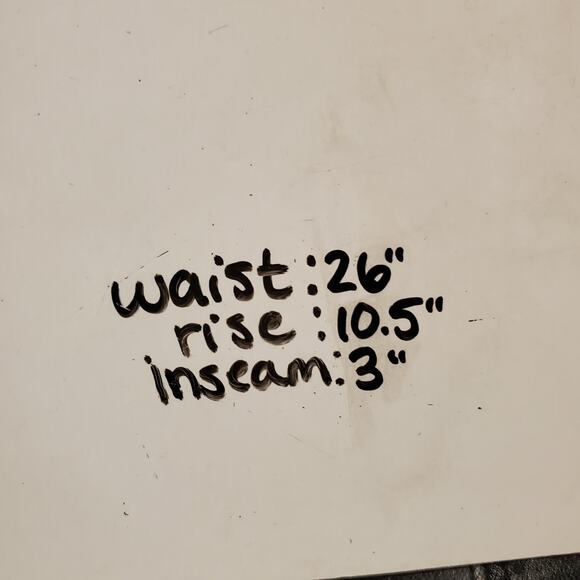 waist: 26"
rise: 10.5"
inseam: 3"